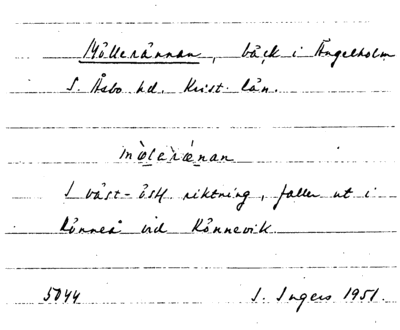 Möllerännan, bäck i Ängelholm
S. Åsbo hd. Krist. län.
mölarænan
I väst-östl. riktning, faller ut i
Rönneå vid Rönnevik
5044 I. Ingers 1951.